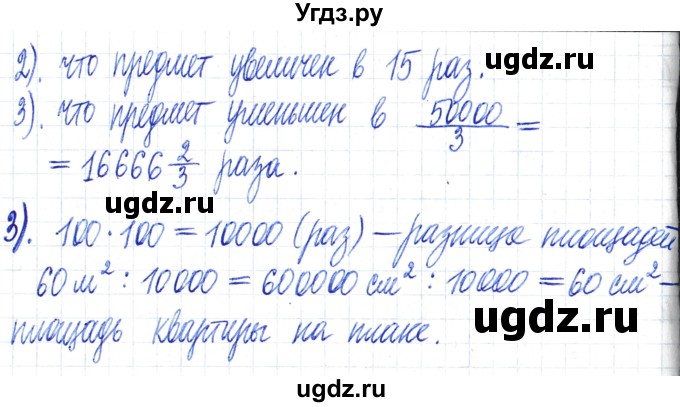 Угдз.ру
2). что предмет увеличен в 15 раз.
ugdz.ru
3). что предмет уменьшен в 50000/3 =
= 16666 2/3 раза.
ugdz.ru
ugdz.ru
3). 100·100 = 10000 (раз) – разница площадей
60 м² : 10000 = 600000 см² : 10000 = 60 см² –
площадь квартиры на плане.
ugdz.ru
ugdz.ru